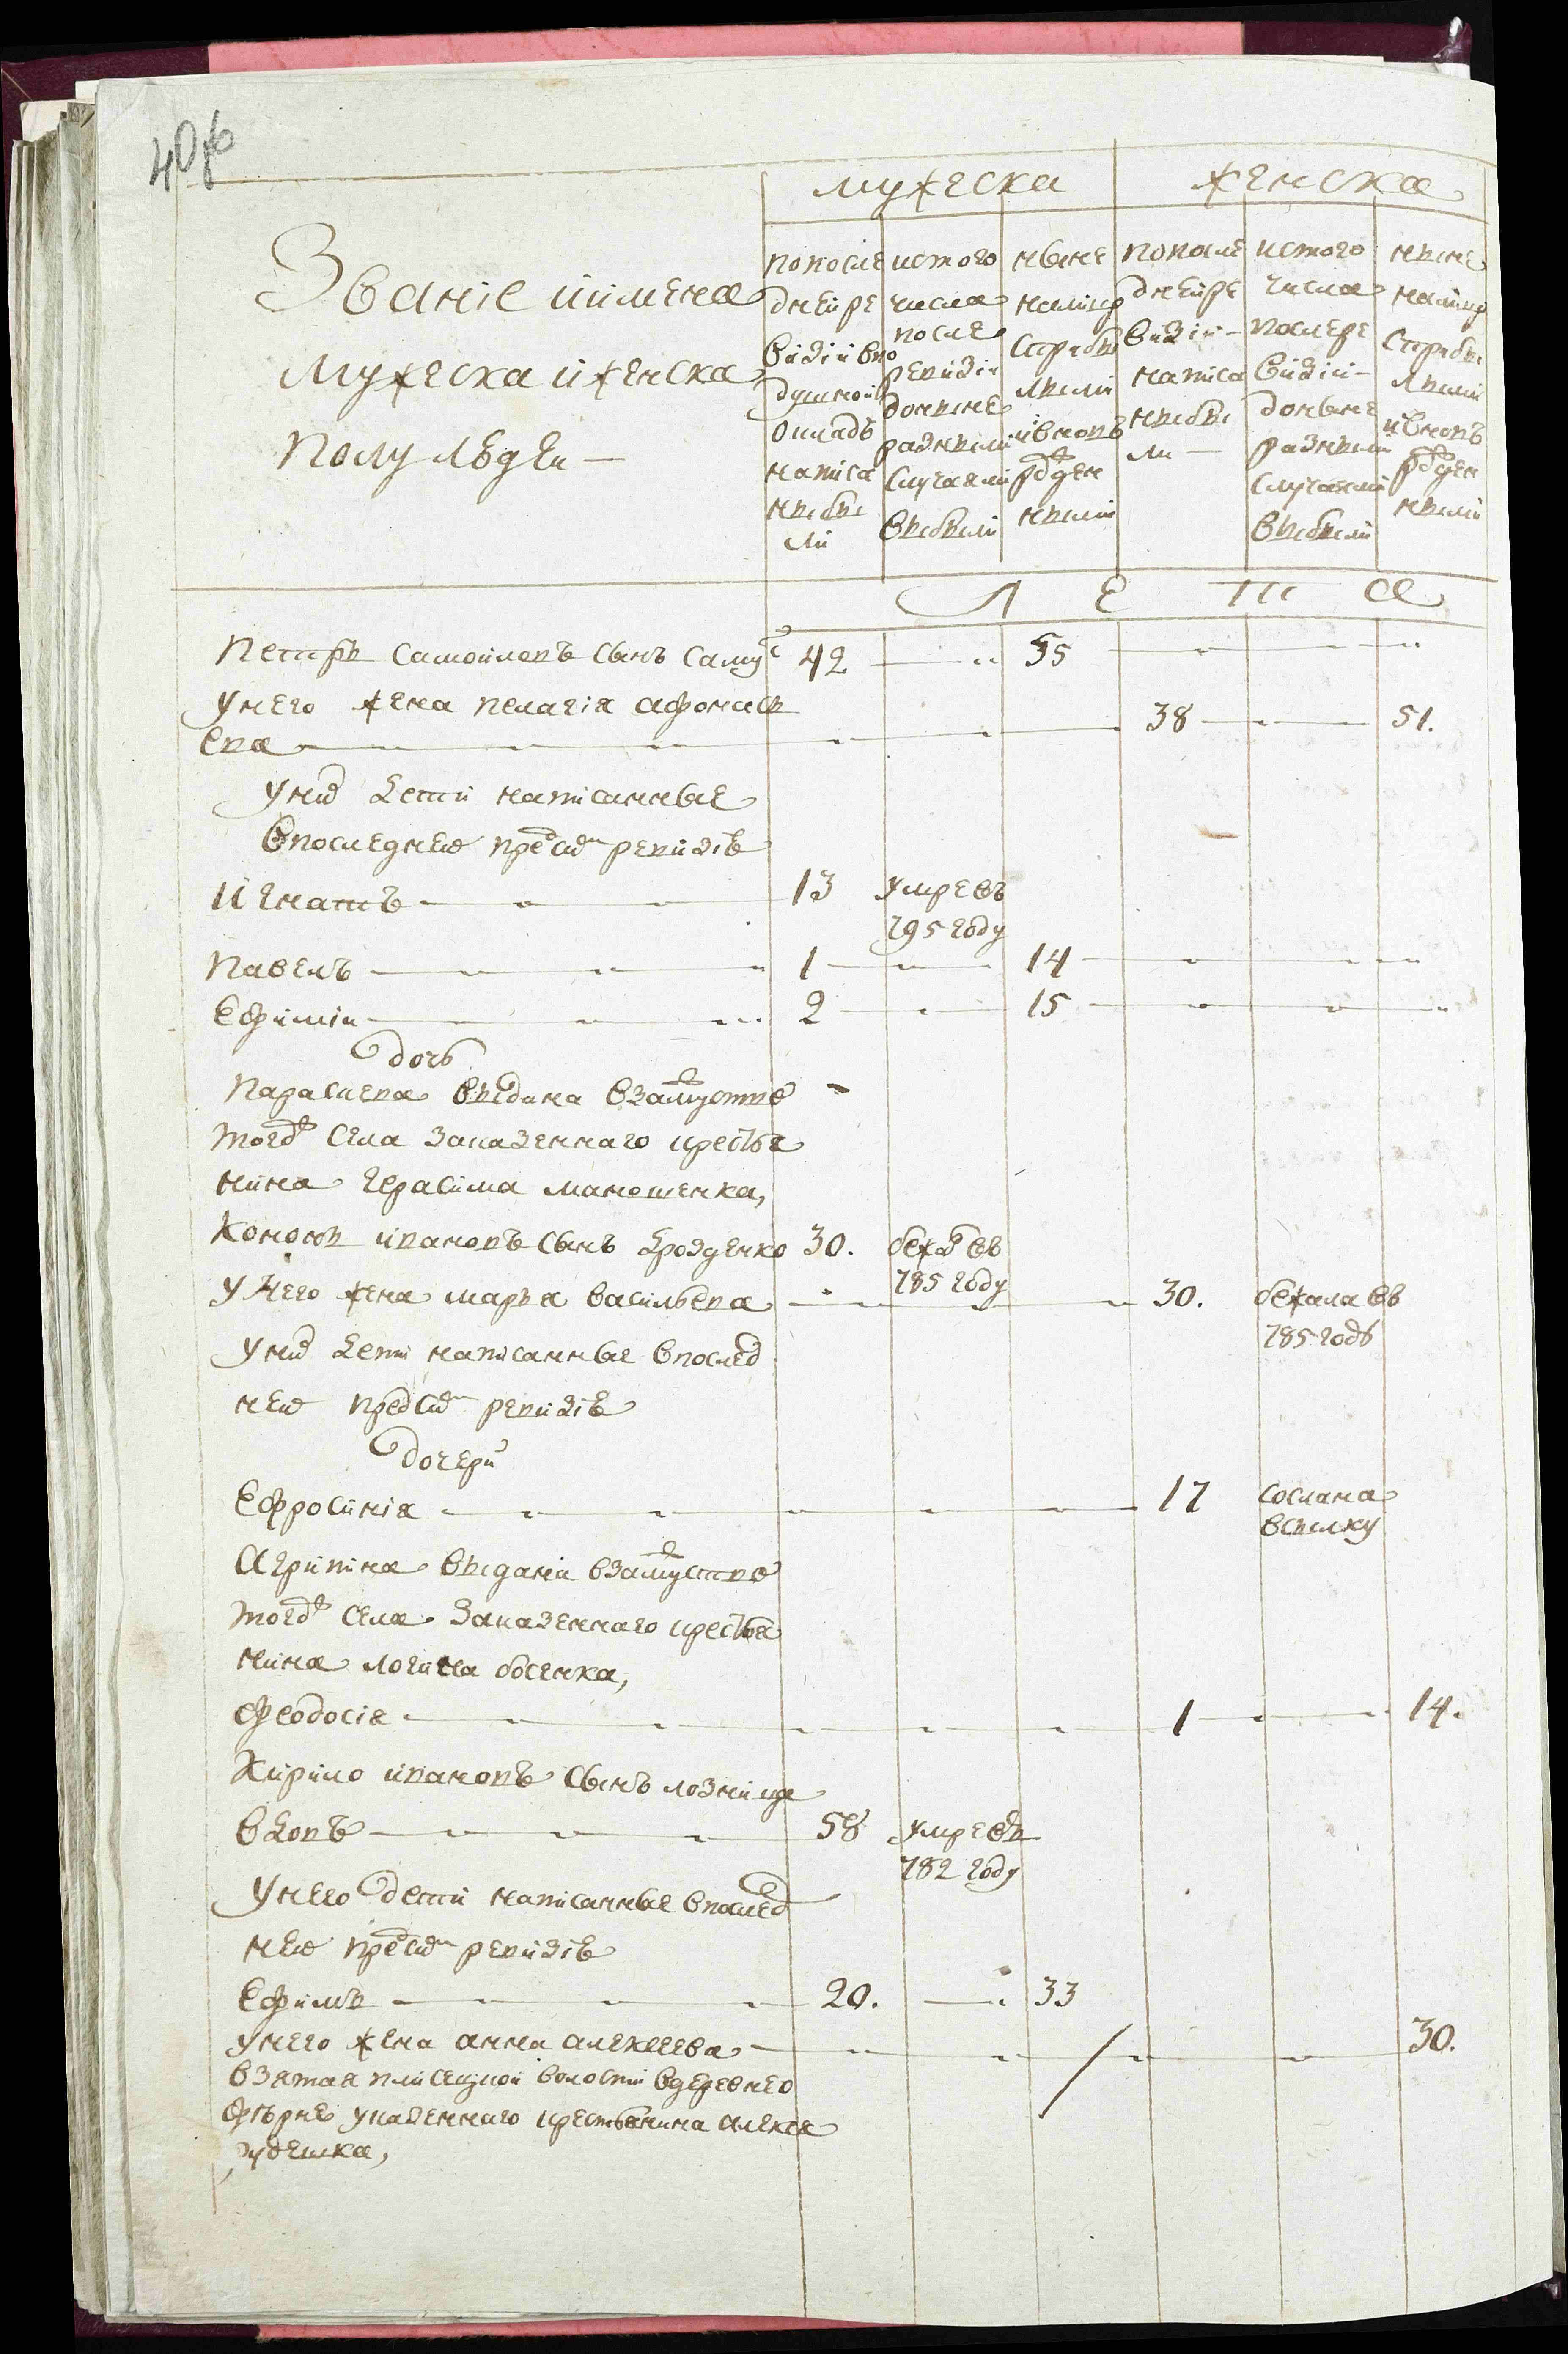 40об
мужеска женска
Званіе иимена
мужеска иженска
полу людей —
попосле днейре визіи впо душной окладъ написа ныбы ли
истого числа после ревизіи доныне разными случаями выбыли
ныне налицо сприбы лыми ивновь рожден ными
попосле днейре визіи — написа ныбы ли —
истого числа послере визіи — доныне разными случаями выбыли
ныне налицо сприбы лыми ивновь рожден ными
Л Е Т А
Петръ Самойловъ сынъ 42 55
унего жена пелагія афонась
ева 38 51.
уних дети написанные
впоследней пред сим ревизіе
Игнатъ 13 умре въ
795 году
Павелъ 1 14
Ефимій 2 15
дочь
Параскева выдана взамужство
тогож села Заказенного крестья
нина Герасима маношенка,
Кононъ ивановъ сынъ дрозденко 30. бежал въ
785 году
унего жена марья васильева 30. бежала въ
785 годъ
уних дети написанные впослед
ней пред сим ревизіе
дочери
Ефросинія 17 сослана
всылку
Агрипина выдана взамужство
тогож села Заказенного крестья
нина логина босенка,
Феодосія 1 14.
Кирило ивановъ сынъ лозници
вдовъ 58 умре въ
782 году
унего дети написанные впослед
ней пред сим ревизіе
Ефимъ 20. 33
унего жена анна алексеева 30.
взятая плисецкой волости вдеревне
указенного крестьянина алексея